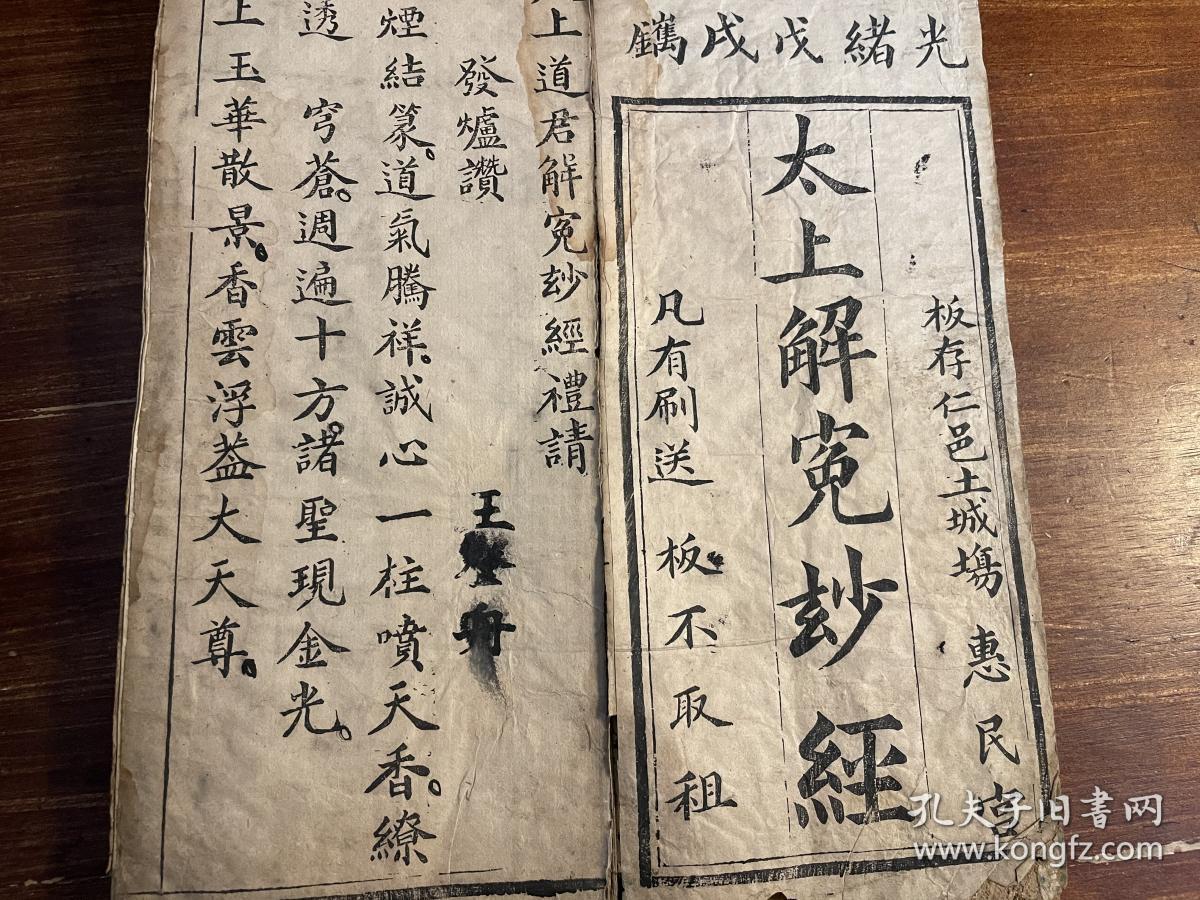 光緒戊戌鐫
板存仁邑土城塲惠民宮
太上解寃玅經
凡有刷送板不取租
上道君解寃玅經禮請
發爐讚
王
煙結篆。道氣騰祥。誠心一柱噴天香。繚
透穹蒼。週遍十方。諸聖現金光。
上玉華散景。香雲浮蓋大天尊。
孔夫子旧書网
www.kongfz.com